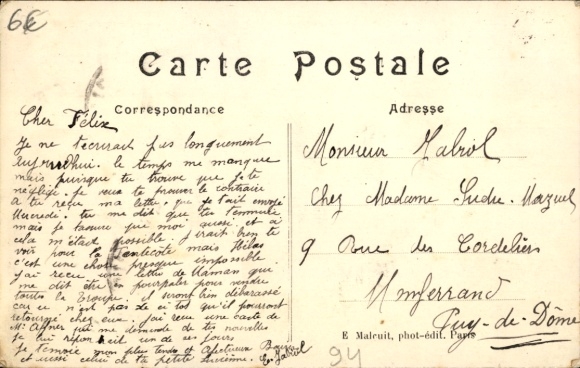 6€
Carte Postale
Correspondance
Adresse
Cher Félix
Je ne t'ecrirait pas longuement
aujourdhui. le temps me manque
mais puisque tu trouve que je te
néglige. je veux te prouver le contraire
a tu reçu ma lettre. que je t'ait envoyé
Mercredi. tu me dit que tu t'ennuie
mais je t'assure que moi aussi et si
cela m'était possible j'irait bien te
voir pour la Pentecôte mais Hélas
c'est une chose presque impossible
j'ai recu une lettre de Maman que
me dit être en pourpaler pour vendre
toutes la Troupe. il seront bien débarassé
car ce n'est pas de si tot qu'il pourront
retourné chez eux. j'ai recu une carte de
Mr qui me demande de tes nouvelles
je lui répondrait un de ses jours
Je t'envoie mon plus tendre et afectueux Baiser
et aussi celui de ta petite
Monsieur Zabrol
Chez Madame Sudre-Mazuel
9 Rue des Cordeliers
Montferrand
Puy-de-Dôme
E Malcuit, phot-édit. Paris
94